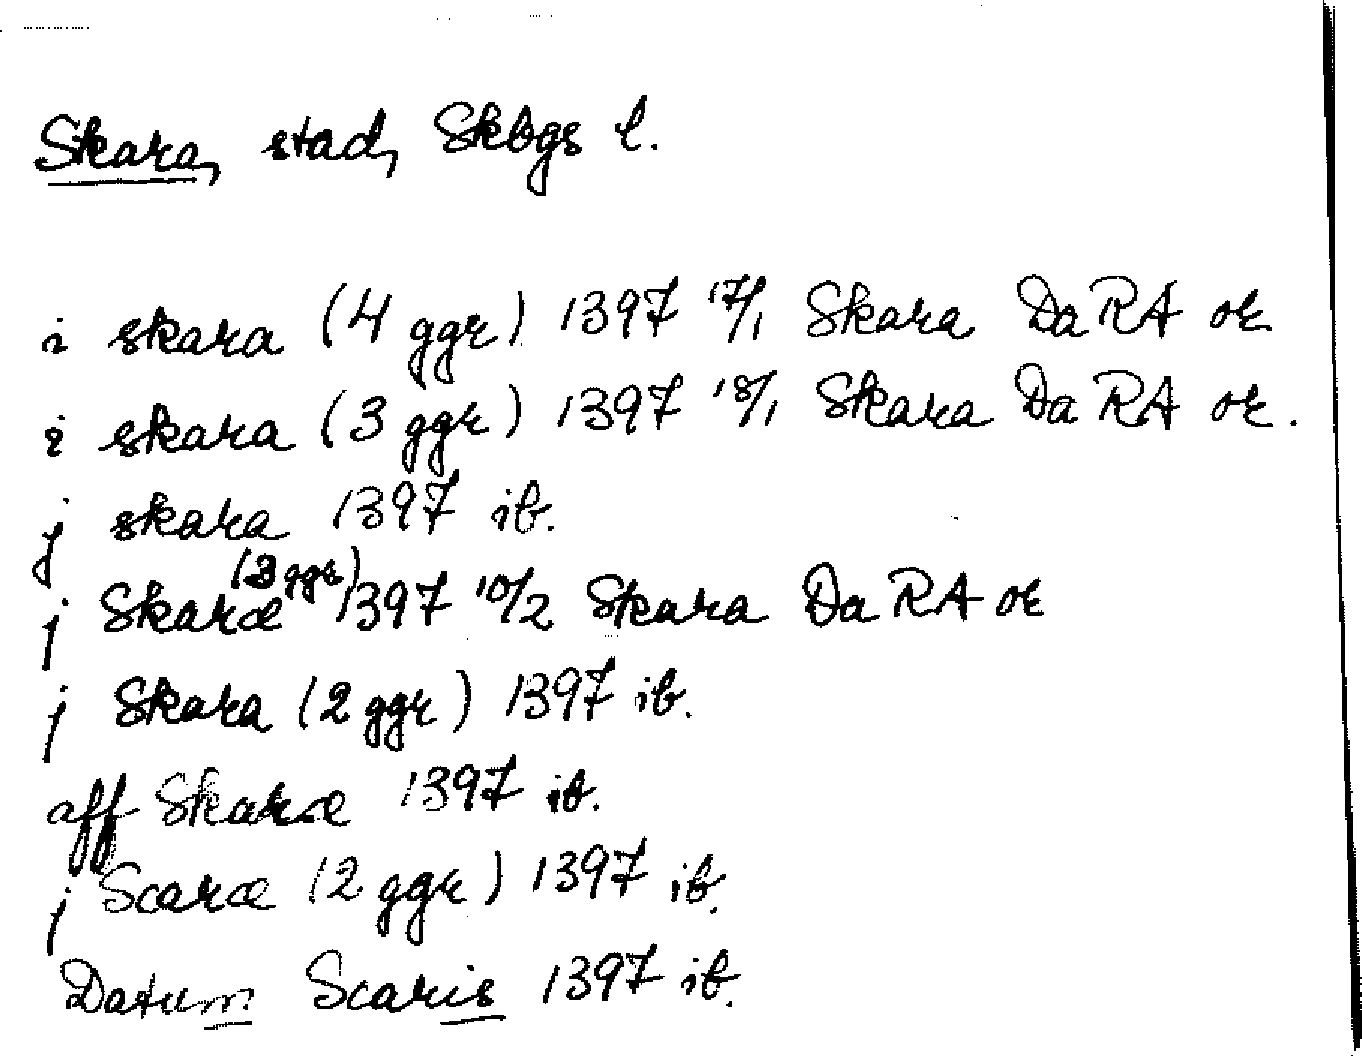 Skara, stad, Skbgs l.
i skara (4 ggr) 1397 17/1 Skara Da RA or
i skara (3 ggr) 1397 18/1 Skara Da RA or.
j skara 1397 ib.
j Skaræ (3 ggr) 1397 10/2 Skara Da RA or
j Skara (2 ggr) 1397 ib.
aff Skaræ 1397 ib.
j Scaræ (2 ggr) 1397 ib.
Datum Scaris 1397 ib.